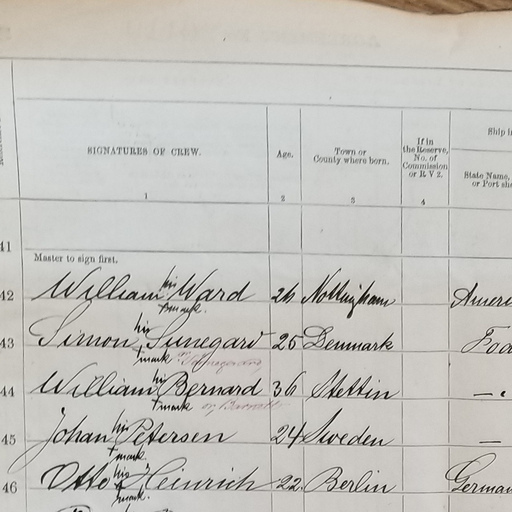 Ship i
SIGNATURES OF CREW. Age. Town or County where born. If in the Reserve, No. of Commission or R V 2. State Name, or Port sh
1 2 3 4
41
Master to sign first.
42 William his + mark Ward 26 Nottingham Ameri
43 Simon his + mark Sunegard 25 Denmark
44 William his + mark Bernard 36 Stettin
or
45 Johan his + mark Petersen 24 Sweden —
46 Otto his + mark Heinrich 22 Berlin German